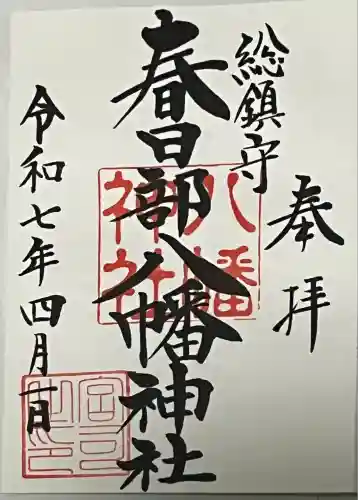 奉拝
総鎮守
春日部八幡神社
八幡神社
令和七年四月一日
宮司之印